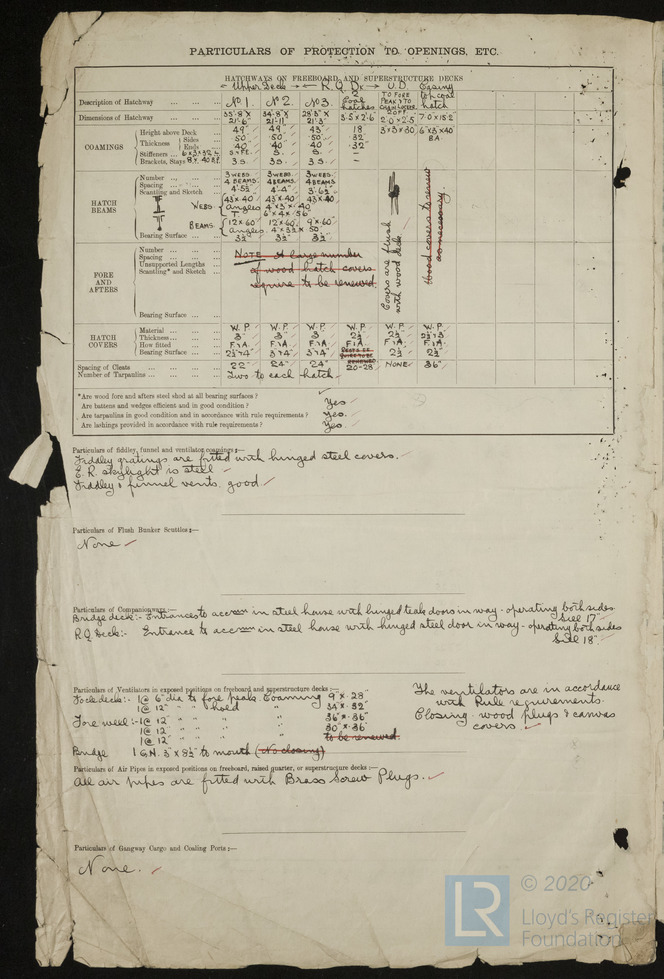 PARTICULARS OF PROTECTION TO OPENINGS, ETC.
HATCHWAYS ON FREEBOARD AND SUPERSTRUCTURE DECKS
← Upper Deck → ← R.Q.Dk → U.D. Casing
Description of Hatchway No 1. No 2. No 3. 2 Coal hatches TO FORE PEAK & TO top coal hatch
Dimensions of Hatchway 35'-8" X 21'-6" 34'-8" X 21'-11" 28'-3" X 21'-3" 3.5 x 2'-6" 2.0 x 2.5 7.0 x 15.2
COAMINGS
Height above Deck 49" 49" 43" 18 3x3x30 6"x3"x40"
Thickness Sides 50 50 50 32 B.A.
Ends 40 40 40 .32"
Stiffeners S. S. –
Brackets, Stays 3 S. 3 S. 3 S. –
HATCH BEAMS
Number 3 WEBS 4 BEAMS. 3 WEBS. 4 BEAMS. 3 WEBS. 4 BEAMS
Spacing 4'-5½" 4'-4" 3'-6½"
Scantling and Sketch 43x40 43x40 43x40
WEBS angles 4"x3"x.40
BEAMS 12"x60 12"x60 9"x60
angles 4"x3½"x50
Bearing Surface 3½" 3½" 3½"
Covers are flush with wood deck
Wood covers to renew as necessary.
FORE AND AFTERS
Number
Spacing
Unsupported Lengths
Scantling* and Sketch
Bearing Surface
NOTE A large number
of wood hatch covers
require to be renewed.
HATCH COVERS
Material W.P. W.P. W.P. W.P. W.P. W.P.
Thickness 3" 3" 3" 2½ 2½ 2½"x3"
How fitted F.&A. F.&A. F.&A. F.&A. F.&A. F.&A.
Bearing Surface 2½"x4" 3"x4" 3"x4" 2½ 2½"
Spacing of Cleats 22" 24" 24" 20-28 NONE 36"
Number of Tarpaulins Two to each hatch.
*Are wood fore and afters steel shod at all bearing surfaces?
Are battens and wedges efficient and in good condition? Yes
Are tarpaulins in good condition and in accordance with rule requirements? Yes.
Are lashings provided in accordance with rule requirements? Yes.
Particulars of fiddley, funnel and ventilator coamings:—
Fiddley gratings are fitted with hinged steel covers.
E.R. skylight is steel
Fiddley & funnel vents. good
Particulars of Flush Bunker Scuttles:—
None
Particulars of Companionways:—
Bridge deck:- Entrances to accom in steel house with hinged teak doors in way - operating both sides.
Sill 17"
R.Q. Deck:- Entrance to accom in steel house with hinged steel door in way - operating both sides
Sill 18".
Particulars of Ventilators in exposed positions on freeboard and superstructure decks:—
Focle deck:- 1@ 6" dia to fore peak. Coaming 9" x .28
1@ 12" " " hold " 34" x .32"
Fore well:- 1@ 12" " " " 36" x .36"
1@ 12" " " " 30" x .36
1@ 12" " " to be renewed.
Bridge 1 G.N. 3" x 8½" to mouth (No closing)
The ventilators are in accordance
with Rule requirements.
Closing: wood plugs & canvas
covers.
Particulars of Air Pipes in exposed positions on freeboard, raised quarter, or superstructure decks:—
All air pipes are fitted with Brass Screw Plugs.
Particulars of Gangway Cargo and Coaling Ports:—
None.
LR
© 2020
Lloyd's Register
Foundation